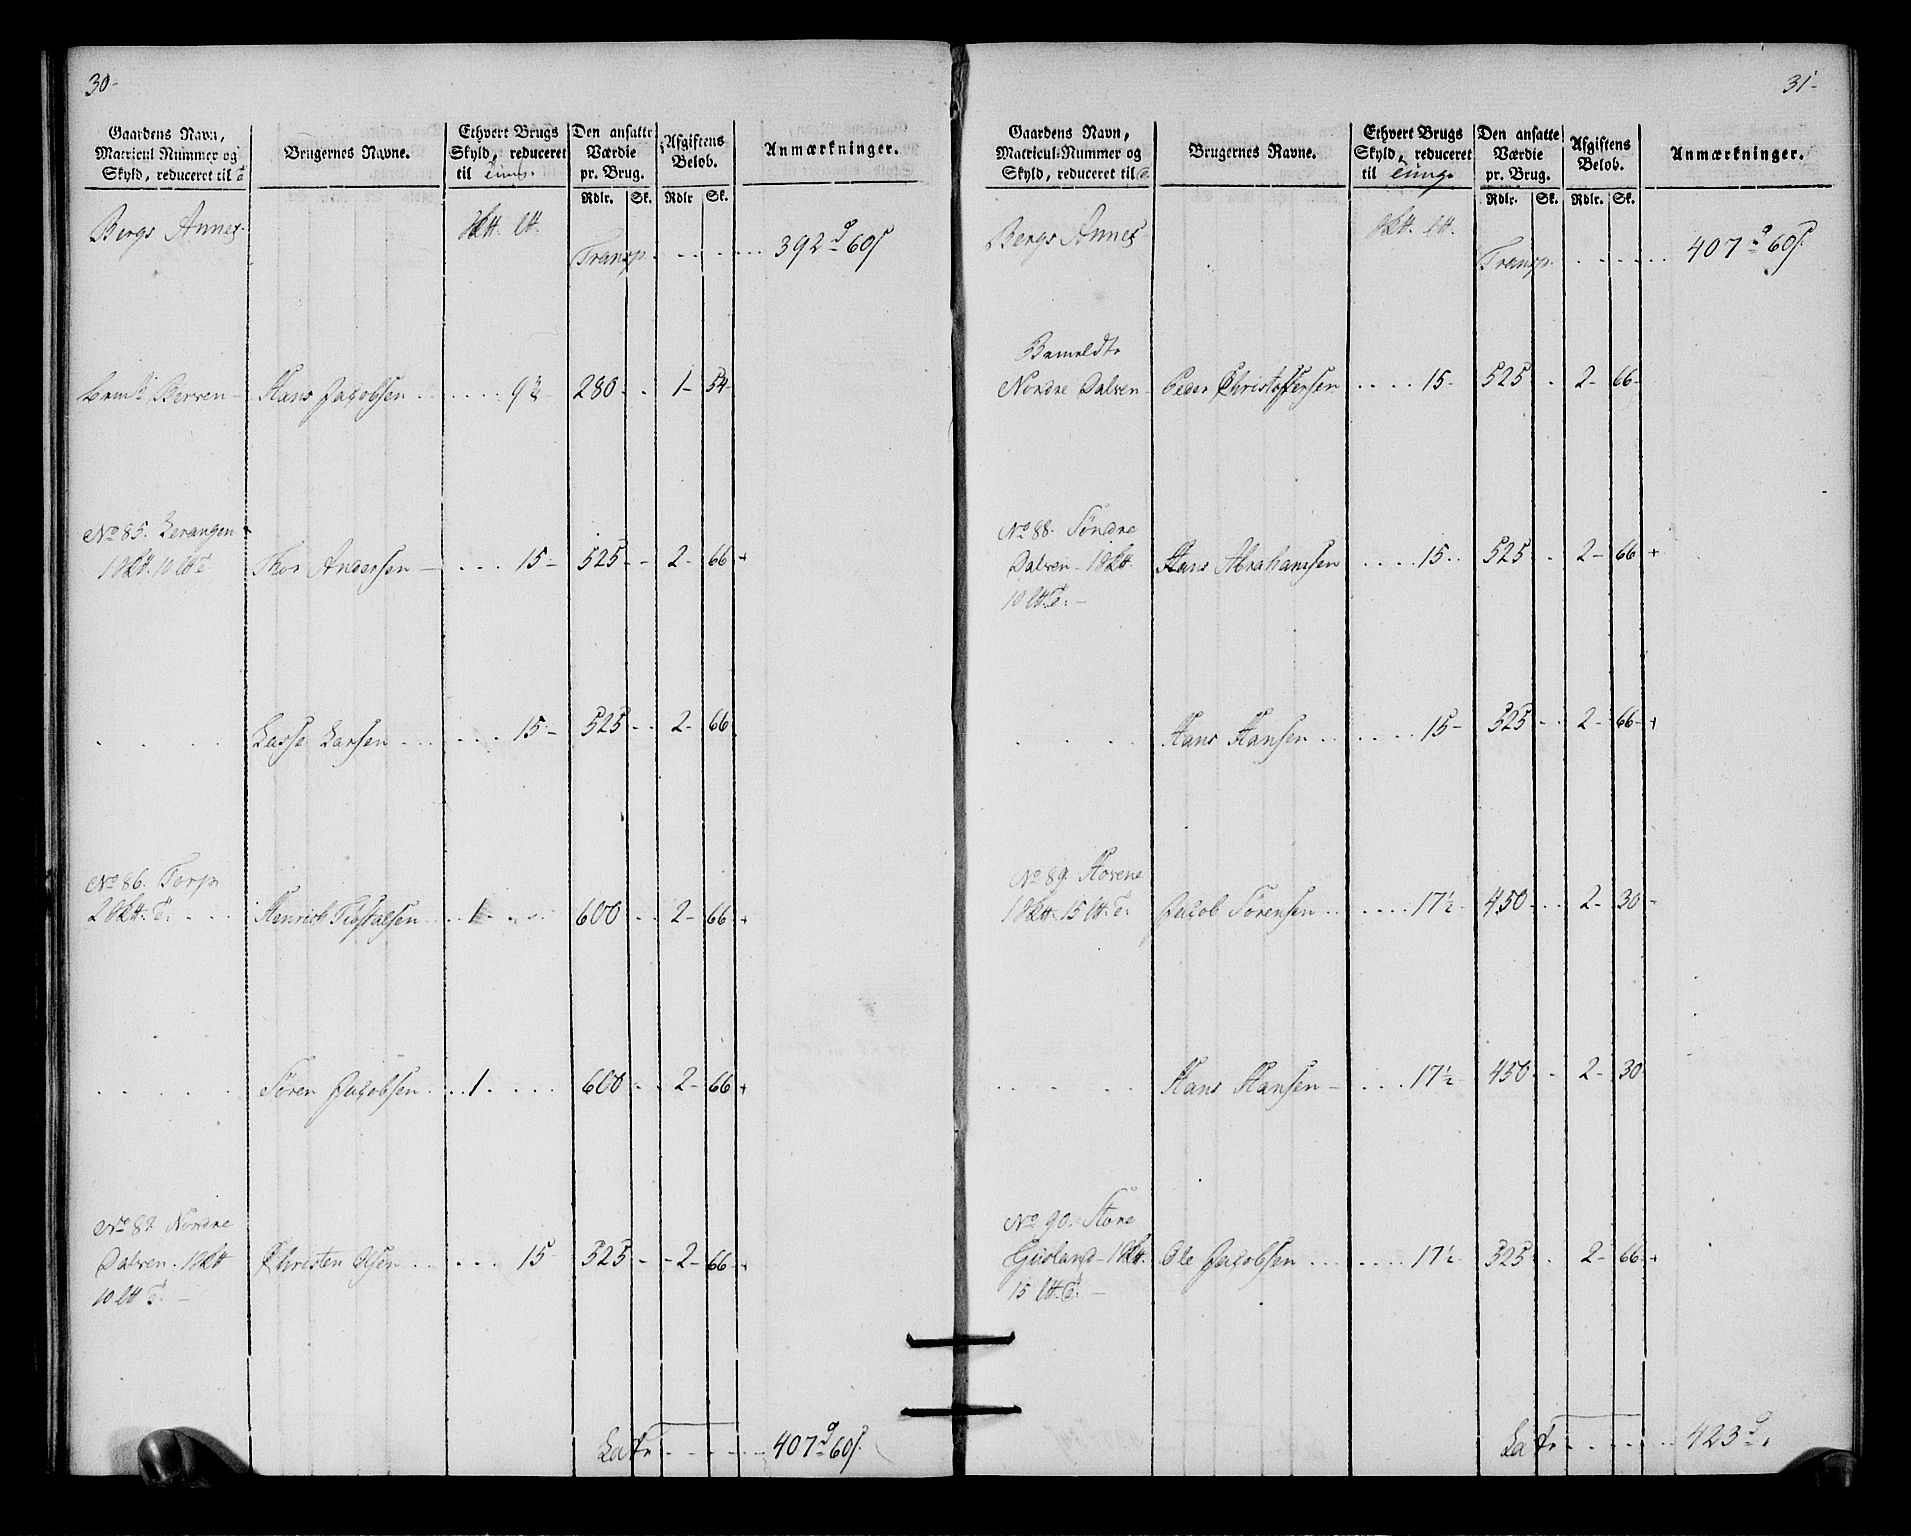 30-
Gaardens Navn,
Matricul Nummer og
Skyld, reduceret til
Brugernes Navne.
Ethvert Brugs
Skyld, reduceret
til
Den ansatte
Værdie
pr. Brug.
Afgiftens
Beløb.
Anmærkninger.
Rdlr. Sk. Rdlr Sk.
Bergs Annex
Transp. 392 60
Berven Hans Jacobsen 9 280 1- 54-
No 85. Levangen
10 Thor Andersen 15- 525 2- 66 +
Lasse Larsen 15- 525 2- 66
No 86. Torp
2 Henrich 1 600 2- 66 +
Søren Jacobsen 1 600 2- 66 +
No 87 Nordre
Dalven Christen Olsen 15 525 2- 66 +
10
Latr 407 60
31-
Gaardens Navn,
Matricul-Nummer og
Skyld, reduceret til
Brugernes Navne.
Ethvert Brugs
Skyld, reduceret
til
Den ansatte
Værdie
pr. Brug.
Afgiftens
Beløb.
Anmærkninger.
Rdlr. Sk. Rdlr. Sk.
Bergs Annex
Transp. 407 60
Bemeldte
Nordre Dalven Peder Christoffersen 15- 525 2- 66-
No 88. Søndre
Dalven Hans Abrahamsen 15 525 2- 66 +
10
Hans Hansen 15- 525 2- 66- +
No 89. Hovene
15 Jacob Sørensen 17½ 450 2- 30-
Hans Hansen 17½ 450 2- 30
No 90. Store
Gusland Ole Jacobsen 17½ 525 2- 66 +
15
Latr 423